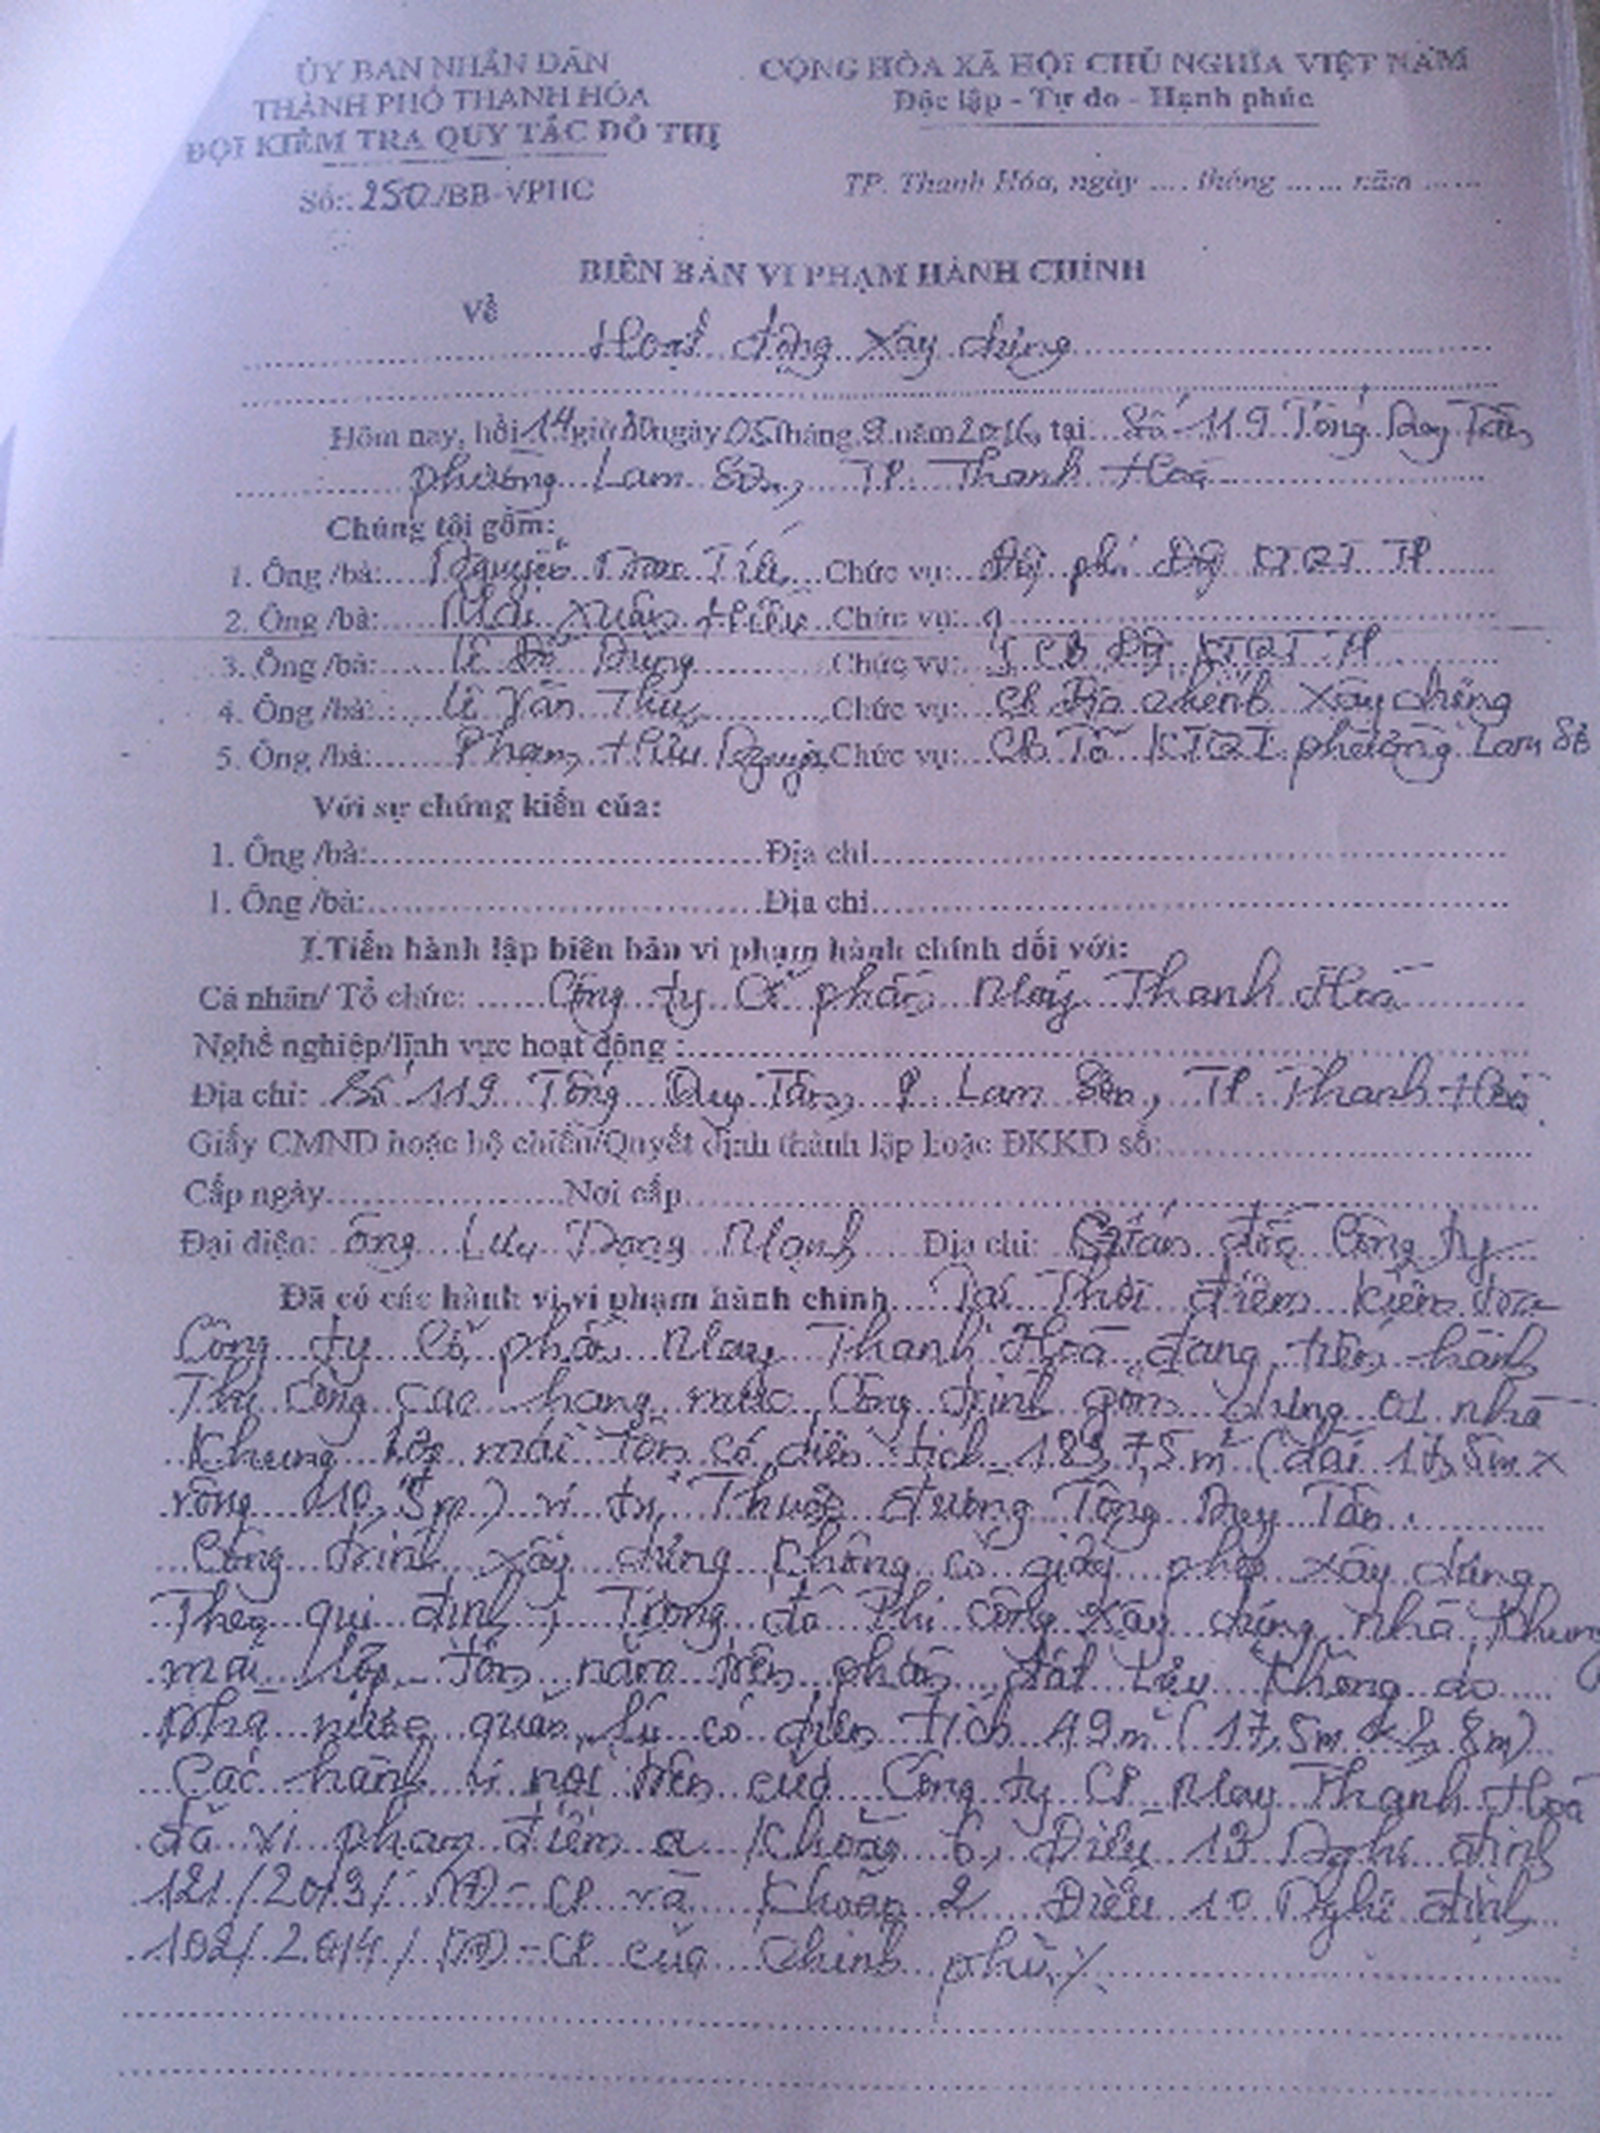 ỦY BAN NHÂN DÂN
THÀNH PHỐ THANH HÓA
ĐỘI KIỂM TRA QUY TẮC ĐÔ THỊ
Số: 250/BB-VPHC
CỘNG HÒA XÃ HỘI CHỦ NGHĨA VIỆT NAM
Độc lập - Tự do - Hạnh phúc
TP. Thanh Hóa, ngày .... tháng ...... năm ......
BIÊN BẢN VI PHẠM HÀNH CHÍNH
Về
Hoạt động xây dựng
Hôm nay, hồi 14 giờ 30 ngày 05 tháng 9 năm 2016, tại: Số 119 Tống Duy Tân,
phường Lam Sơn, TP. Thanh Hoá
Chúng tôi gồm:
1. Ông /bà: Nguyễn Chức vụ: Đội phó Đội KTQT TP
2. Ông /bà: Mai Xuân Chức vụ:
3. Ông /bà: Lê Chức vụ: CB Đội KTQT TP
4. Ông /bà: Lê Văn Chức vụ: CB xây dựng
5. Ông /bà: Phạm Hữu Chức vụ: CB Tổ KTQT phường Lam Sơn
Với sự chứng kiến của:
1. Ông /bà: Địa chỉ
1. Ông /bà: Địa chỉ
I.Tiến hành lập biên bản vi phạm hành chính đối với:
Cá nhân/ Tổ chức: Công ty Cổ phần May Thanh Hoá
Nghề nghiệp/lĩnh vực hoạt động :
Địa chỉ: Số 119 Tống Duy Tân, P. Lam Sơn, TP. Thanh Hoá
Giấy CMND hoặc hộ chiếu/Quyết định thành lập hoặc ĐKKD số:
Cấp ngày Nơi cấp
Đại diện: ông Lưu Trọng Mạnh Địa chỉ: Giám đốc Công ty
Đã có các hành vi vi phạm hành chính Tại thời điểm kiểm tra
Công ty Cổ phần May Thanh Hoá đang tiến hành
Thi công các hạng mục Công trình gồm: dựng 01 nhà
Khung lợp mái tôn có diện tích 183,75 m² (dài 17,5m x
rộng 10,5m) vị trí Thuộc đường Tống Duy Tân.
Công trình xây dựng không có giấy phép xây dựng
Theo qui định; Trong đó Thi công xây dựng nhà khung
mái lợp tôn nằm trên phần đất lưu không do
Nhà nước quản lý có diện tích 49 m² (17,5m x 2,8m)
Các hành vi nói trên của Công ty CP May Thanh Hoá
đã vi phạm điểm a Khoản 6, Điều 13 Nghị định
121/2013/NĐ-CP và Khoản 2 Điều 10 Nghị định
102/2014/NĐ-CP của Chính phủ./.